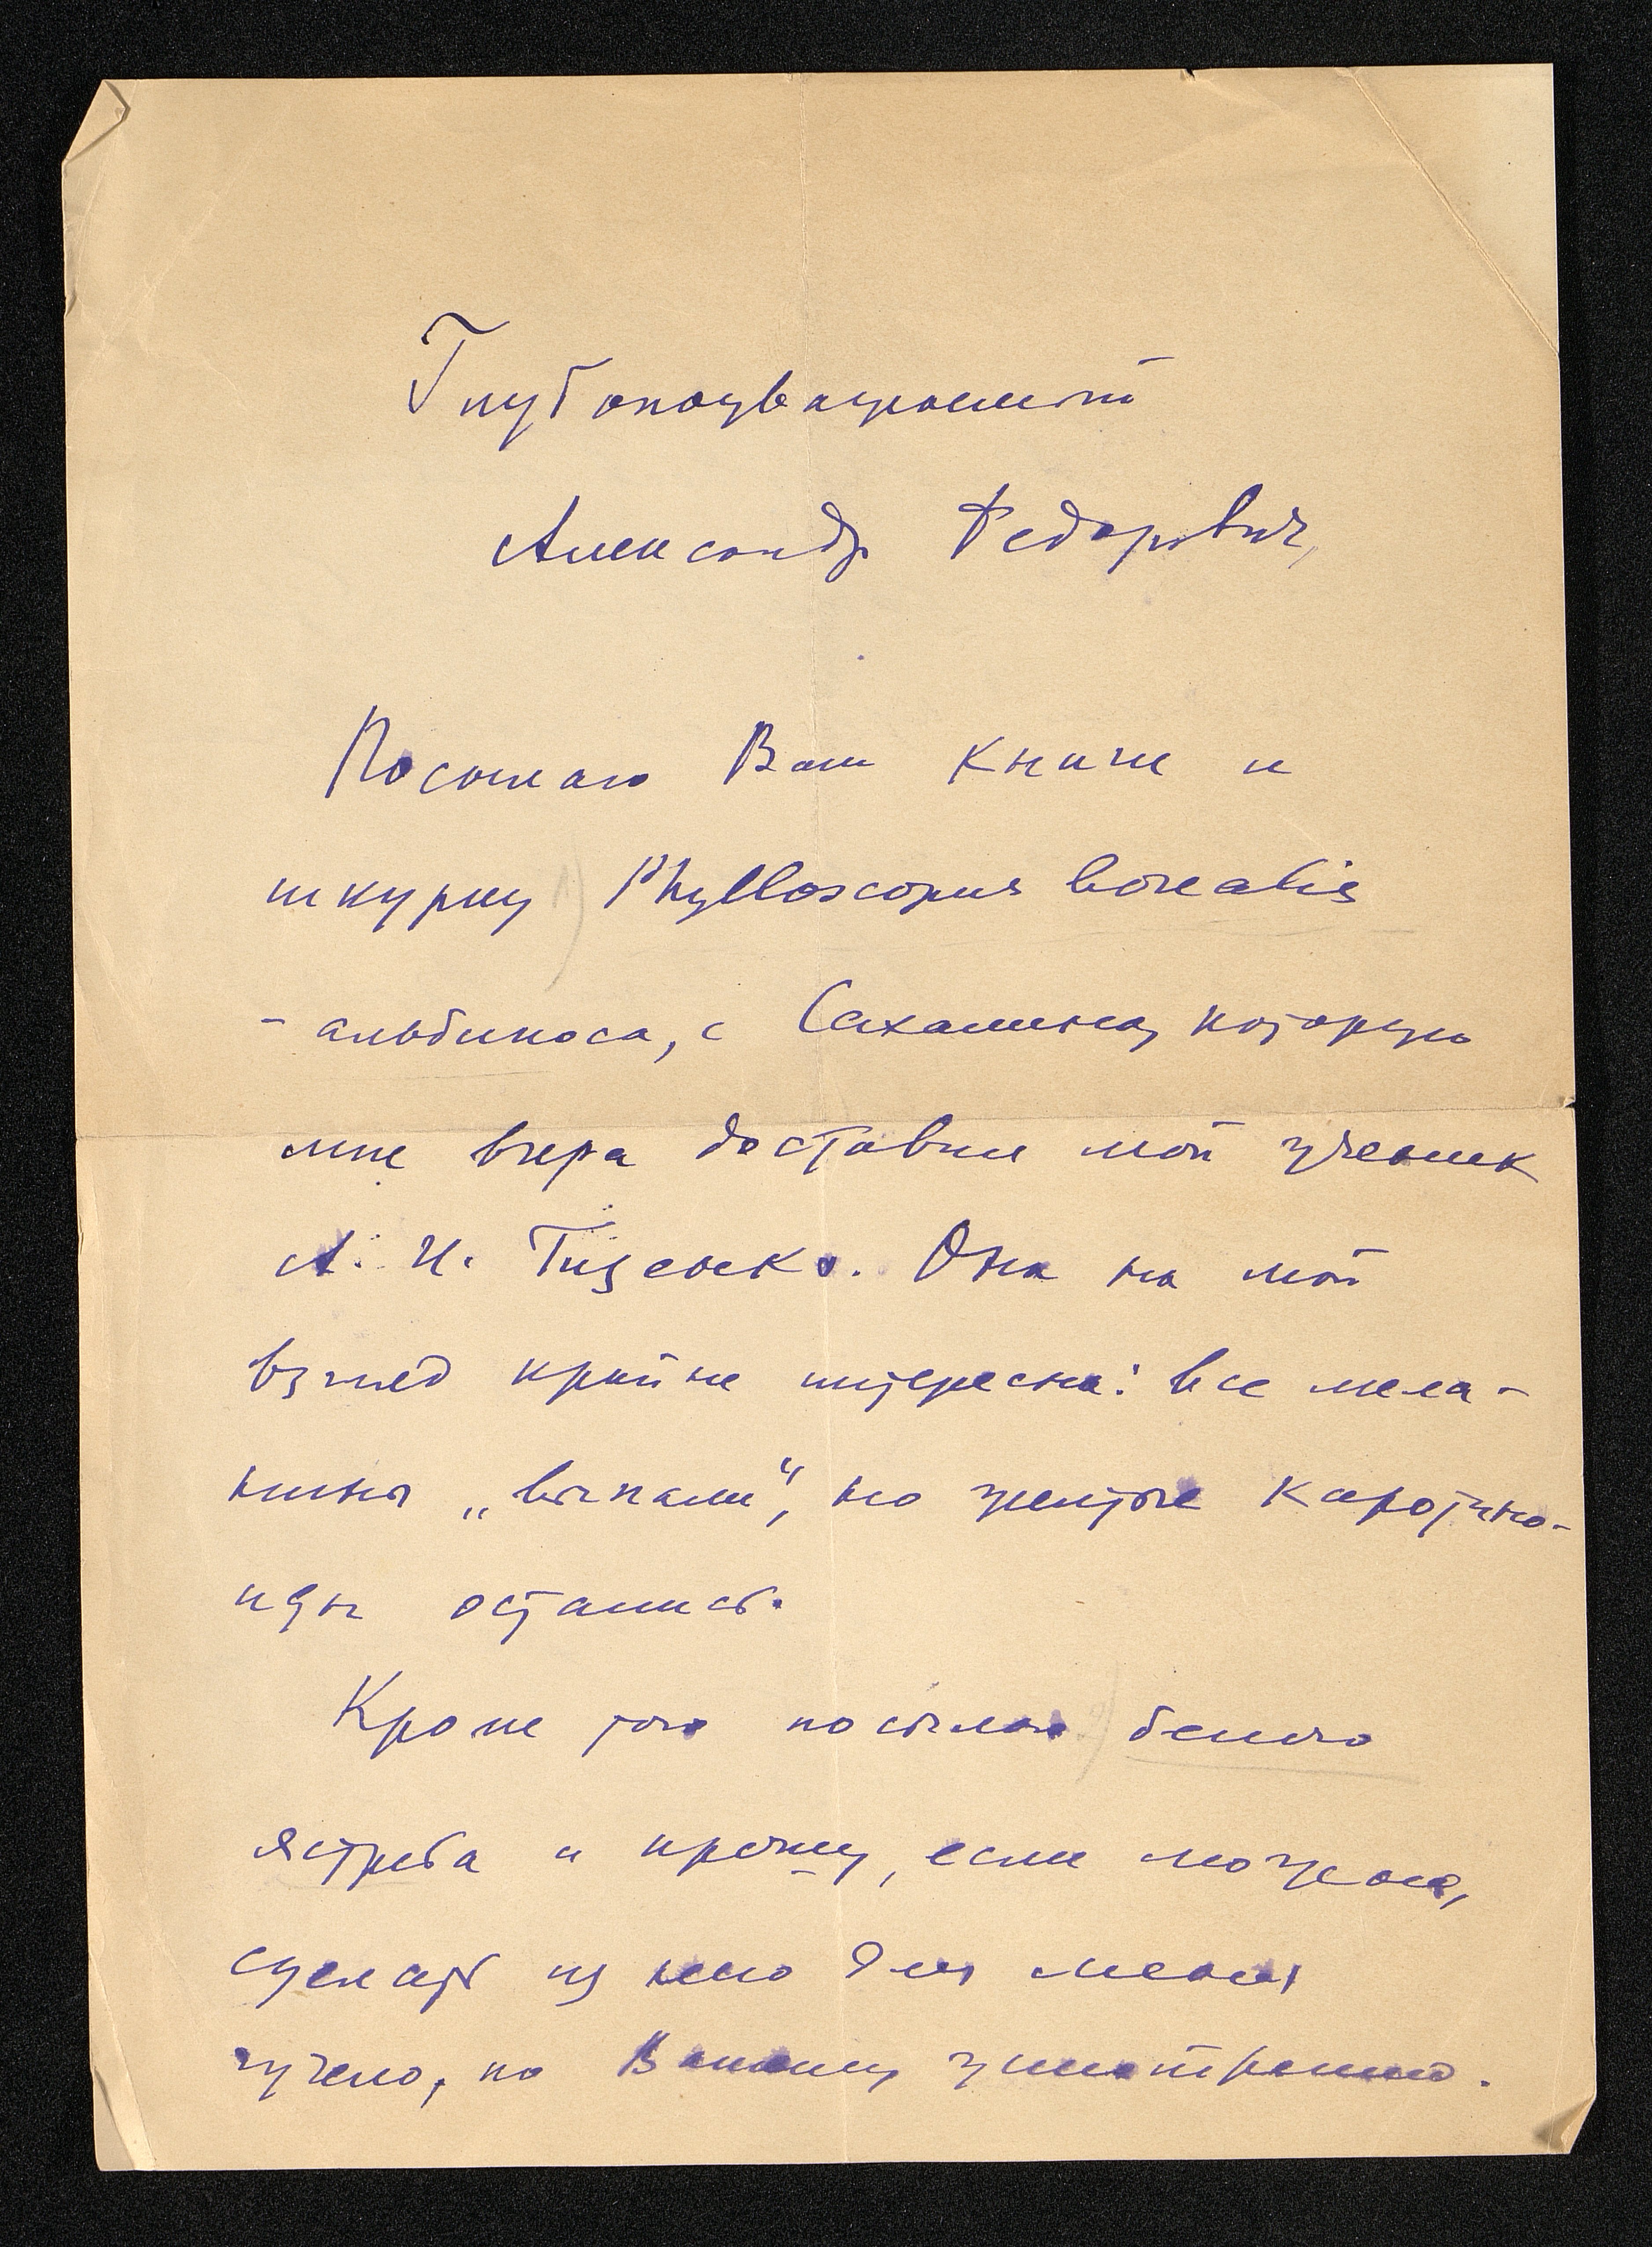 Глубокоуважаемый
Александр Федорович,
Посылаю Вам книги и
шкурку Phylloscopus borealis
- альбиноса, с Сахалина, которую
мне вчера доставил мой ученик
А. И. Гизенко. Она на мой
взгляд крайне интересна: все мела-
нины „выпали“, но желтые кароти­но-
иды остались.
Кроме того посылаю белого
ястреба и прошу, если можно,
сделать из него для меня
чучело, по Вашему усмотрению.